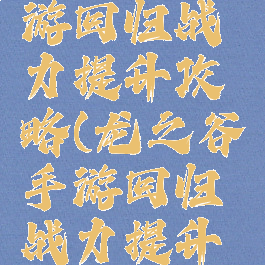 游回归战
力提升攻
略(龙之谷
手游回归
战力提升